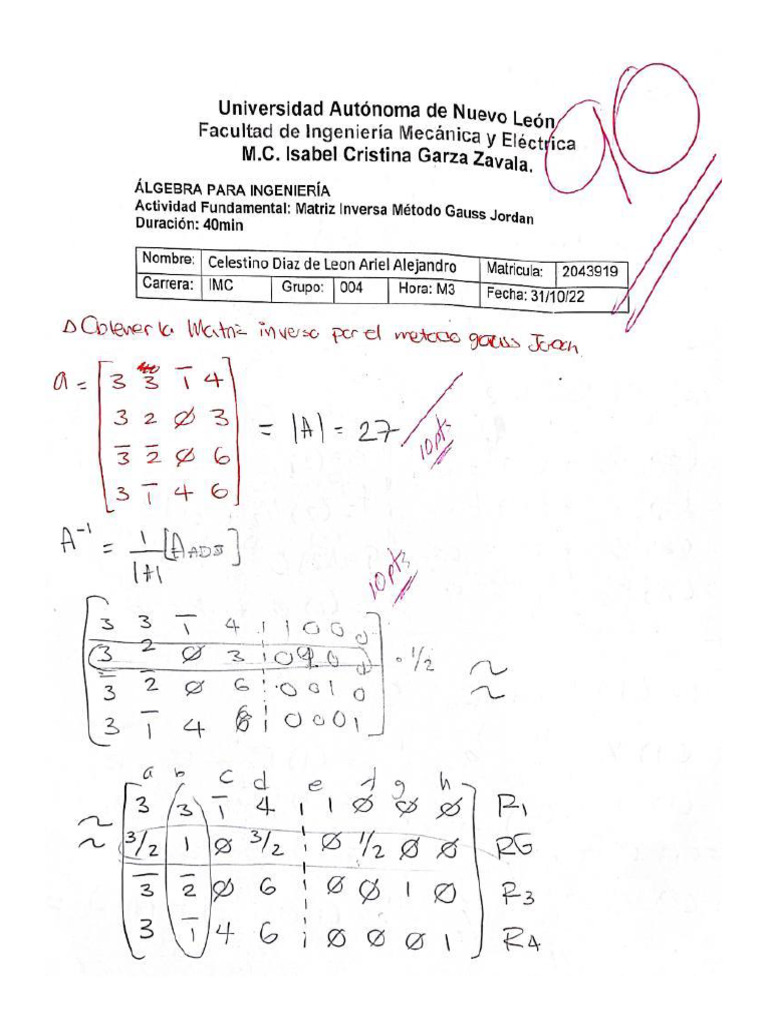 90
Universidad Autónoma de Nuevo León
Facultad de Ingeniería Mecánica y Eléctrica
M.C. Isabel Cristina Garza Zavala.
ÁLGEBRA PARA INGENIERÍA
Actividad Fundamental: Matriz Inversa Método Gauss Jordan
Duración: 40min
Nombre: Celestino Diaz de Leon Ariel Alejandro Matricula: 2043919
Carrera: IMC Grupo: 004 Hora: M3 Fecha: 31/10/22
1) Obtener la Matriz inversa por el metodo gauss Jordan
a = [3 3 1̅ 4
3 2 Ø 3 = |A| = 27 10pts
3̅ 2̅ Ø 6
3 1̅ 4 6]
A⁻¹ = 1/|A| [A ADJ]
10pts
[3 3 1̅ 4 | 1 0 0 0
3 2 Ø 3 | 0 1 0 0 · 1/2 ≈
3̅ 2̅ Ø 6 | 0 0 1 0
3 1̅ 4 6 | 0 0 0 1]
a b c d e f g h
≈ [3 3 1̅ 4 | 1 Ø Ø Ø] R1
3/2 1 Ø 3/2 | Ø 1/2 Ø Ø R6
3̅ 2̅ Ø 6 | Ø Ø 1 Ø R3
3 1̅ 4 6 | Ø Ø Ø 1 R4